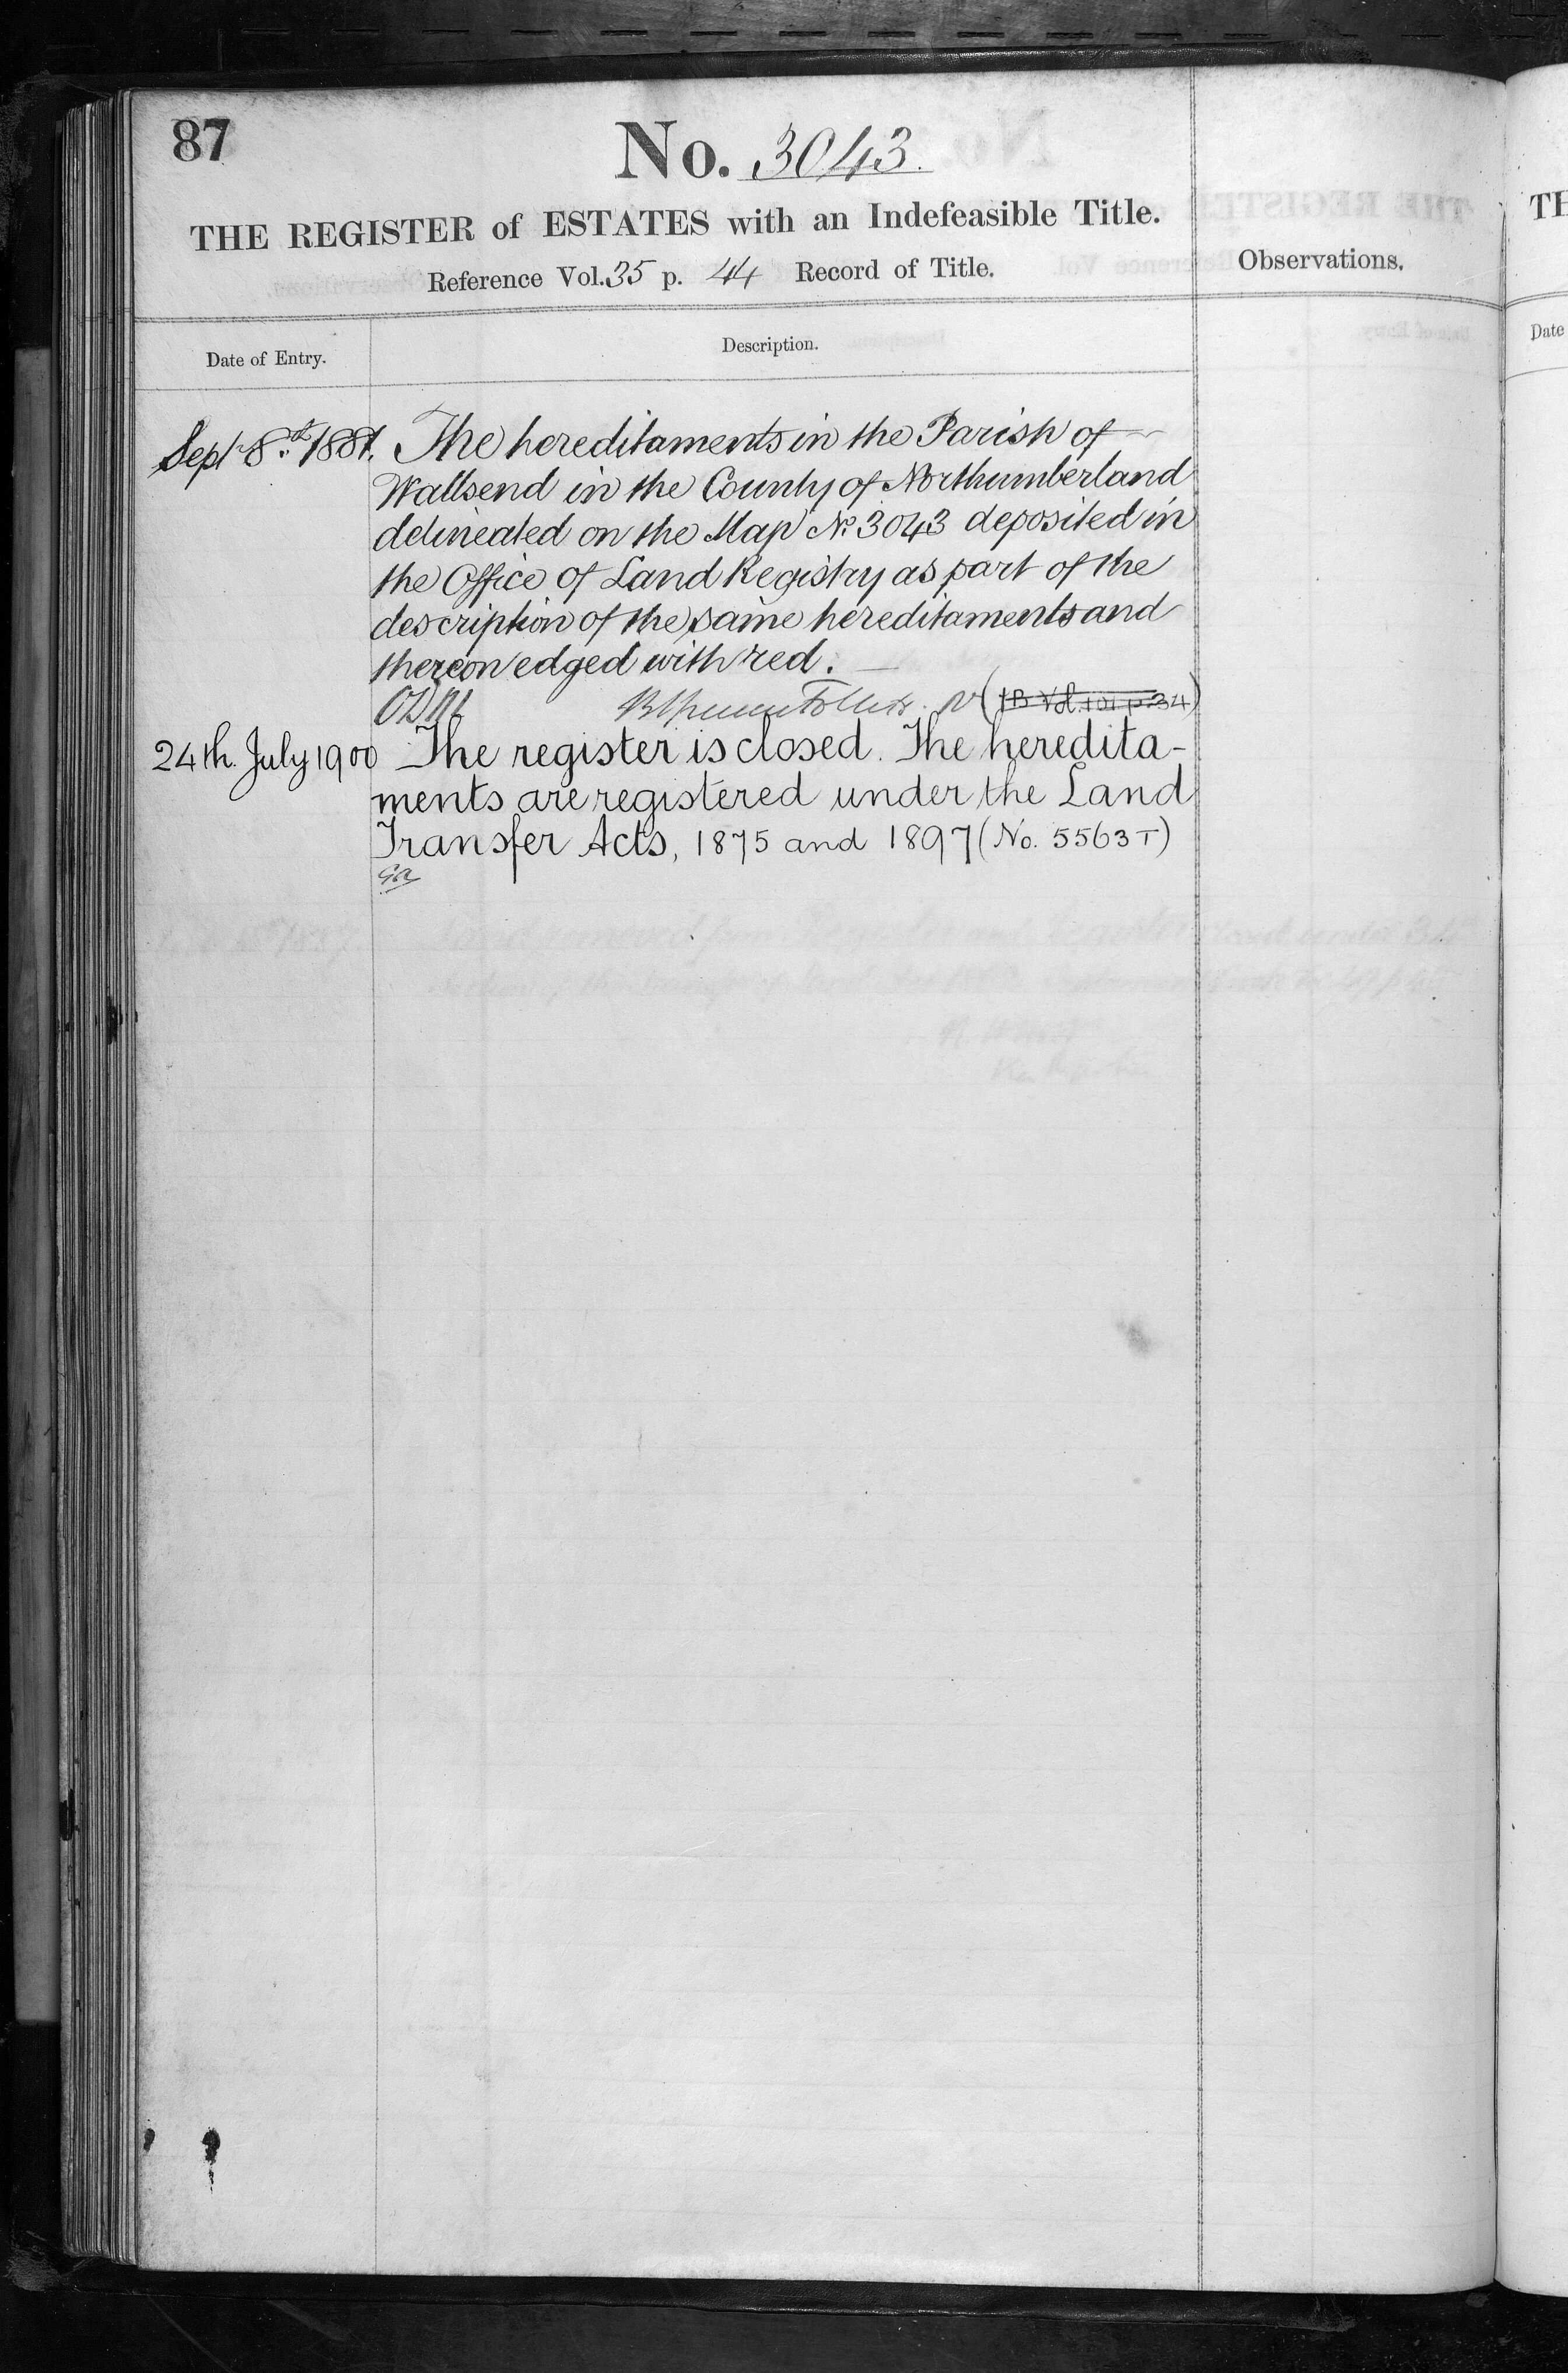 87
No. 3043.
THE REGISTER of ESTATES with an Indefeasible Title.
Reference Vol. 35 p. 44 Record of Title.
Observations.
Date of Entry.
Description.
Sept 8th 1881. The hereditaments in the Parish of
Wallsend in the County of Northumberland
delineated on the Map No 3043 deposited in
the Office of Land Registry as part of the
description of the same hereditaments and
thereon edged with red.
24th. July 1900 The register is closed. The heredita-
ments are registered under the Land
Transfer Acts, 1875 and 1897 (No. 5563T)
TH
Date